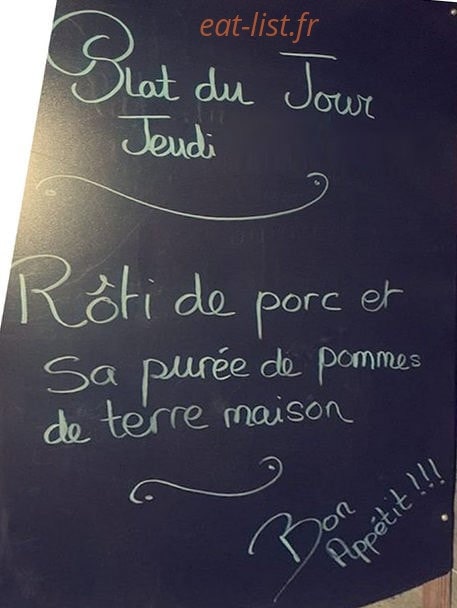 eat-list.fr
Plat du Jour
Jeudi
Rôti de porc et
Sa purée de pommes
de terre maison
Bon
Appétit!!!